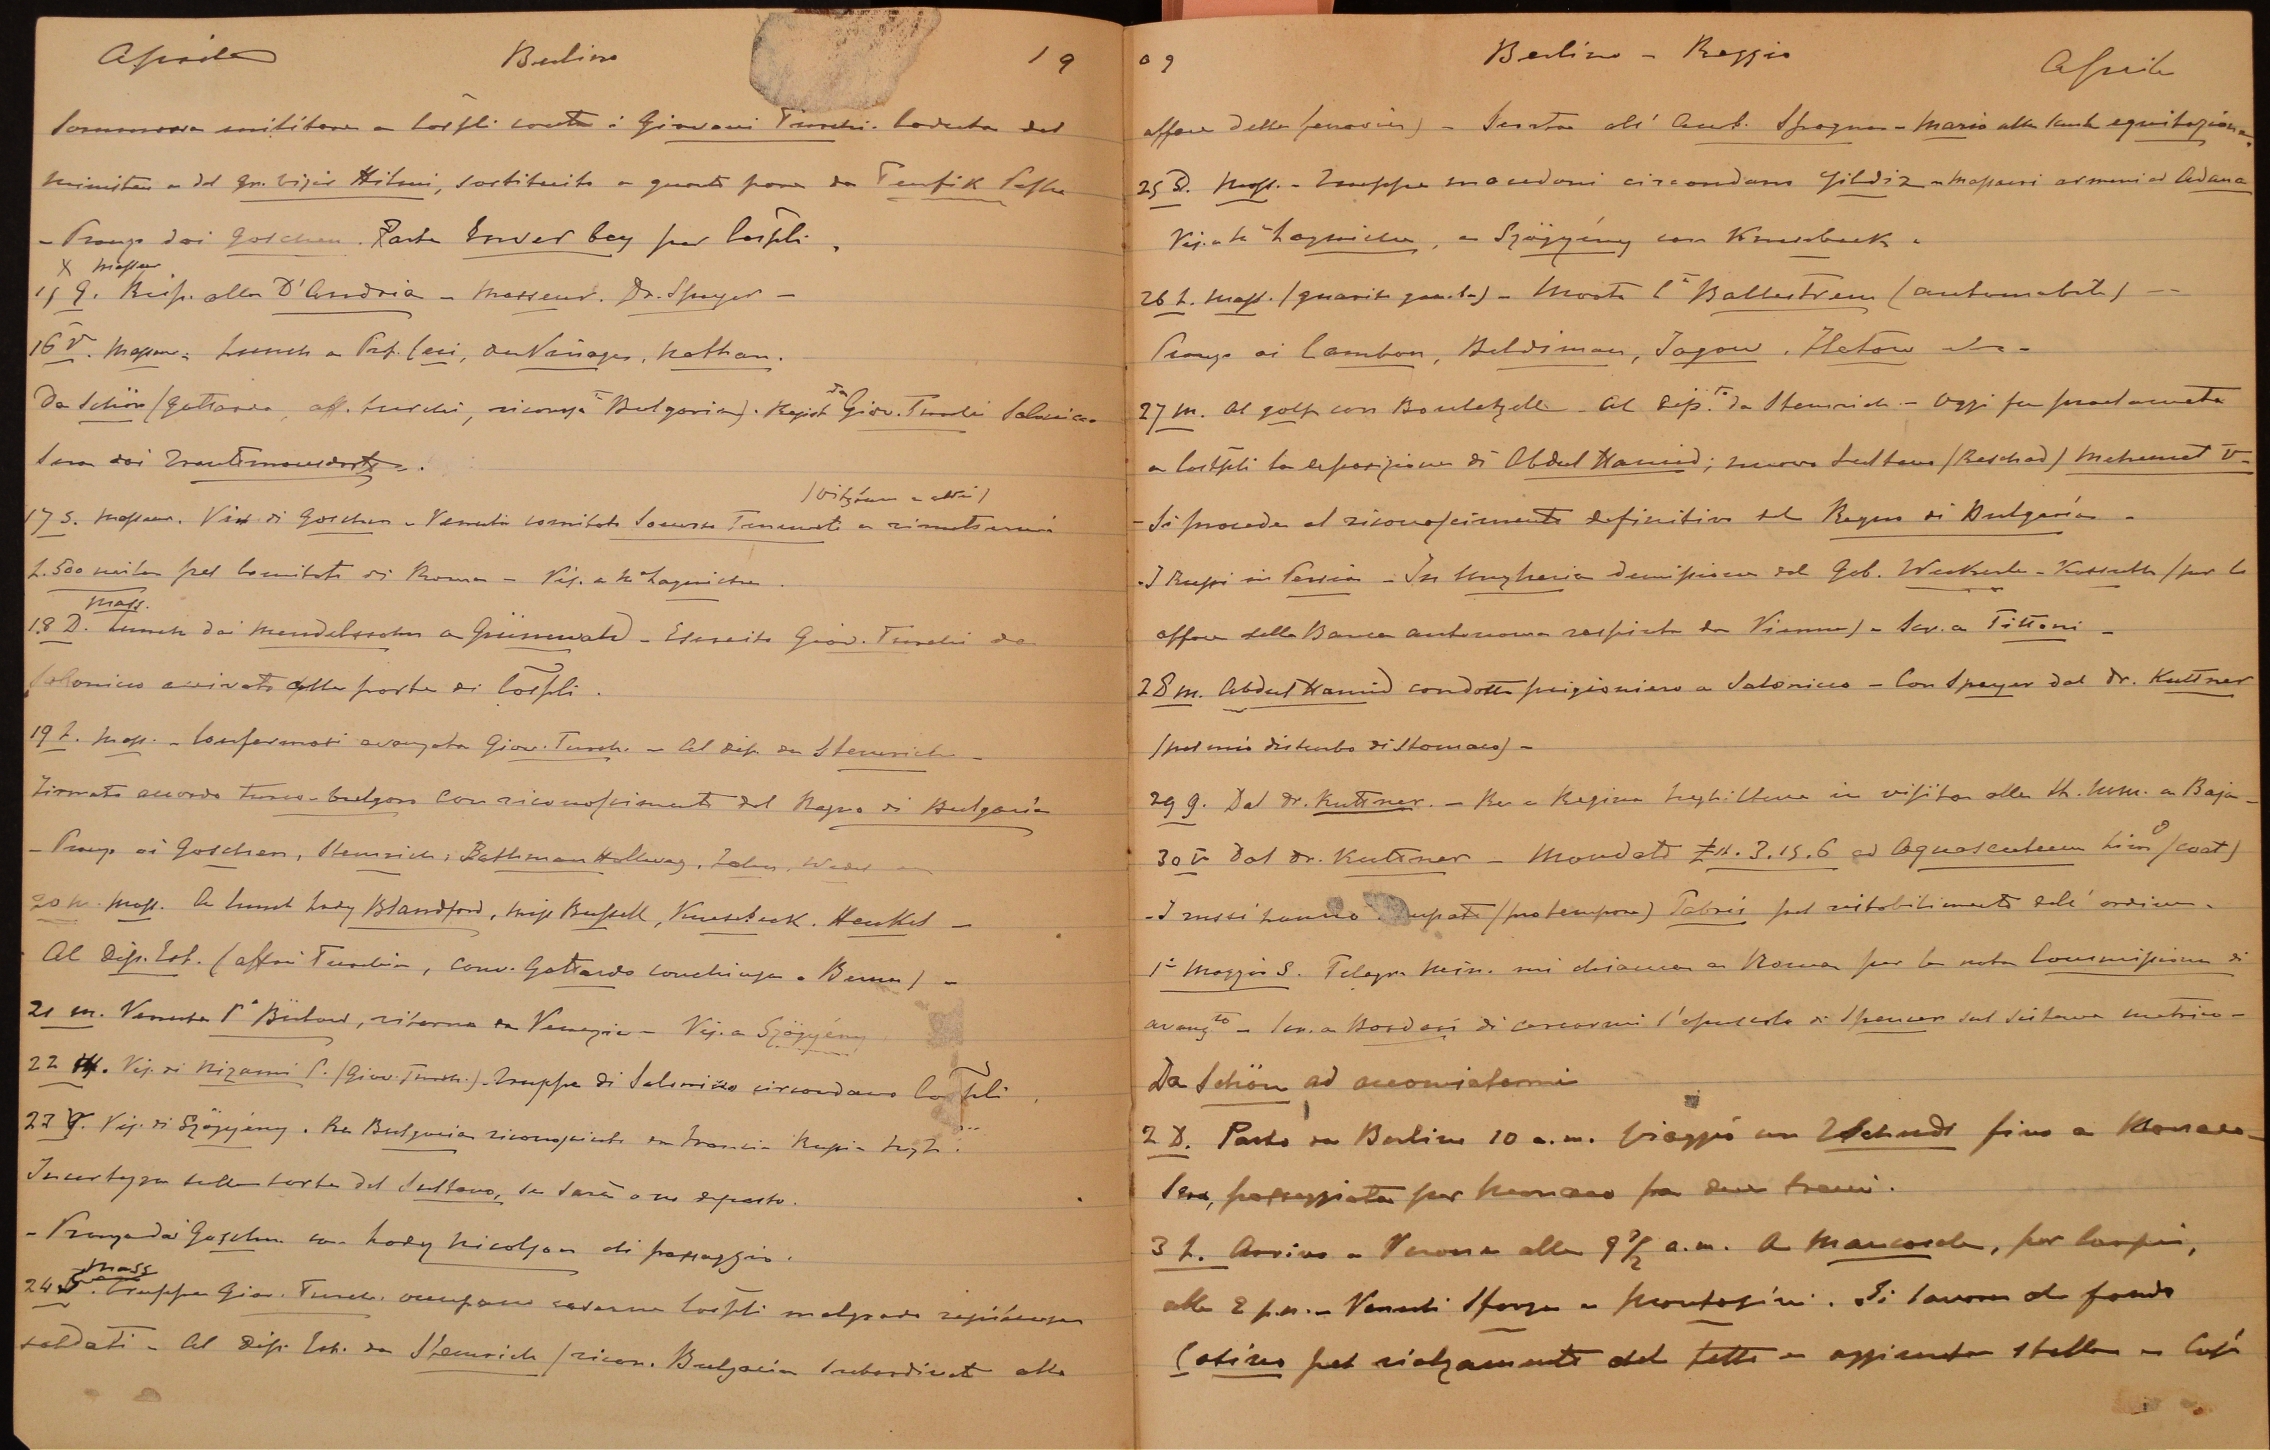 Aprile Berlino 19
Sommossa militare a Co͞spli contro i Giovani Turchi. Caduta del
ministero e del gr. Vizir Hilmi, sostituito a quanto pare da Tewfik Pascha
- Pranzo dai Goschen. Parte Enver bey per Co͞spli.
X Masseur
15 G. Risp. alla D'Andria - Masseur. Dr. Speyer -
16 V. Masseur. Lunch a Prf. Nathan.
Da Schön (Gottardo, aff. turchi, riconosc. Bulgaria). Giov. Turchi Salonicco
Sera dai Trautmansdorff.
17 S. Masseur. Vis. di Goschen - Venuti comitato Soccorso Terremoto a rimettermi
L. 500 mila pel Comitato di Roma - Vis. a
Mass.
18 D. Lunch dai Mendelssohn a Grünewald - Esercito Giov. Turchi da
Salonicco arrivato alle porte di Co͞spli.
19 L. Mass. - Confermasi avanzata Giov. Turch. - Al Dip. da Stemrich -
Firmato accordo turco-bulgaro con riconoscimento del Regno di Bulgaria
- Pranzo ai Goschen, Stemrich, Bethmann Hollweg, Wedel
20 M. Mass. A lunch Lady Blandford, Miss Russell, Knesebeck, Henkel -
Al Dip. Est. (affari Turchia, Conv. Gottardo conchiusa a Berna) -
21 M. Venuta Pssa Bülow, ritorna da Venezia - Vis. a Szögyény
22 Vis. di Nizami P. (Giov. Turch.) - Truppe di Salonicco circondano Co͞spli.
23 Vis. di Szögyény. Re Bulgaria riconosciuto da Francia Russia Ingh.
Incertezza sulla sorte del Sultano, se sarà o no deposto.
- Pranzo dai Goschen con Lady Nicolson di passaggio.
Mass
24 S. Truppe Giov. Turch. occupano caserme Co͞spli malgrado resistenza
soldati - Al Dip. Est. da Stemrich (ricon. Bulgaria subordinato alla
09 Berlino - Reggio Aprile
affare delle ferrovie) - all' Amb. Spagna - Mario alla equitazione.
25 D. Mass. - Truppe macedoni circondano Yildiz - Massacri armeni ad Adana
Vis. a, a Szögyény con Knesebeck.
26 L. Mass. (guarita gamba) - Morto Ce Ballestrem (automobile) --
Pranzo ai Cambon, Beldiman, Jagow, Flotow
27 M. Al golf con - Al Dip.to da Stemrich - Oggi fu proclamata
a Costpli la deposizione di Abdul Hamid; nuovo Sultano (Reschad) Mehemet V -
- Si procede al riconoscimento definitivo del Regno di Bulgaria -
- I Russi in Persia - In Ungheria dimissione del Gab. Wekerle - Kossuth (per lo
affare della Banca autonoma respinto da Vienna) - Scr. a Tittoni -
28 M. Abdul Hamid condotto prigioniero a Salonicco - Con Speyer dal Dr. Kuttner
(pel mio disturbo di stomaco) -
29 G. Dal Dr. Kuttner. - Re e Regina Inghilterra in visita alle a Baja -
30 V Dal Dr. Kuttner - Mandato £st. 3.15.6 ad Aquascutum (coat)
- I russi hanno occupato (pro tempore) Tabris pel ristabilimento dell' ordine.
1° Maggio S. Telegr. Min. mi chiama a Roma per la nota Commissione di
avanz.to - Scr. a Bordari di cercarmi l'opuscolo di Spencer sul sistema metrico -
Da Schön ad accomiatarmi
2 D. Parto da Berlino 10 a.m. Viaggio con Schudt fino a Monaco -
Sera, passeggiata per Monaco fra due treni.
3 L. Arrivo a Verona alle 9 1/2 a.m. A Mancasale, per Carpi,
alle 2 p.m. - Venuti Sforza e Prontosini. Si lavora al fondo
Casino pel rialzamento del tetto e aggiunta stalla - Così